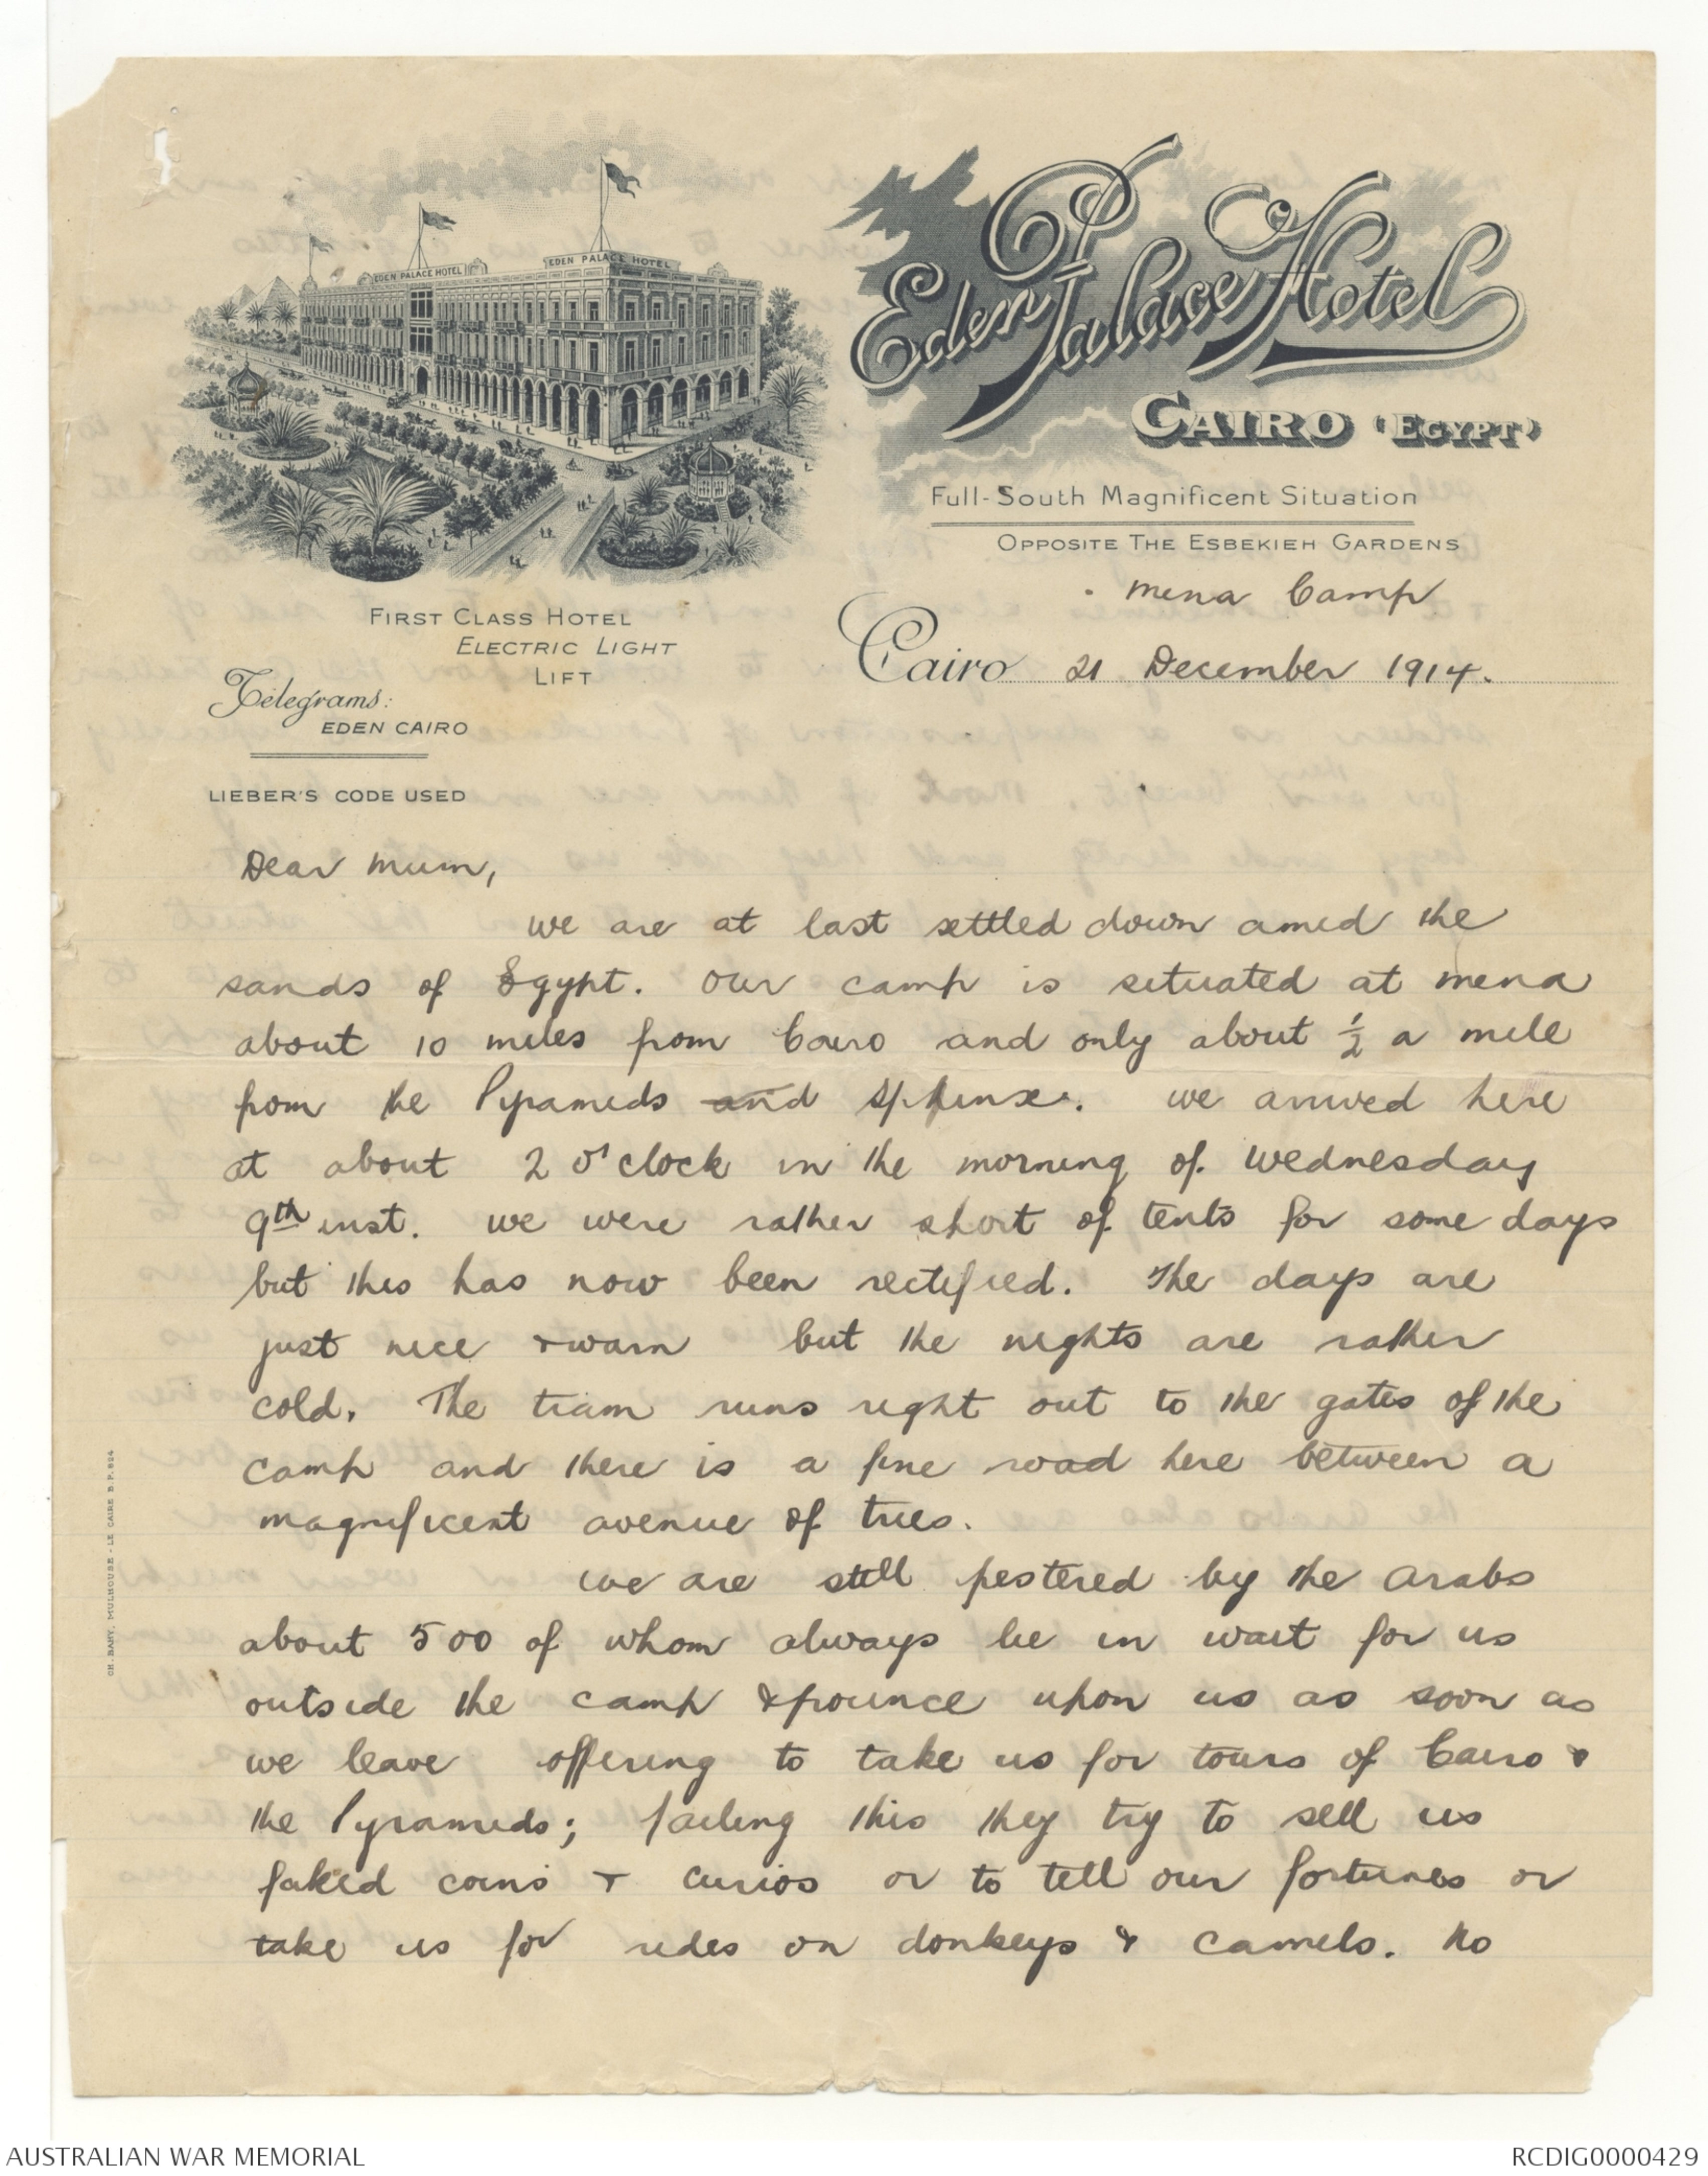 EDEN PALACE HOTEL
EDEN PALACE HOTEL
Eden Palace Hotel
CAIRO (EGYPT)
Full-South Magnificent Situation
OPPOSITE THE ESBEKIEH GARDENS
FIRST CLASS HOTEL
ELECTRIC LIGHT
LIFT
Telegrams:
EDEN CAIRO
LIEBER'S CODE USED
Mena Camp
Cairo 21 December 1914.
Dear Mum,
We are at last settled down amid the
sands of Egypt. Our camp is situated at Mena
about 10 miles from Cairo and only about ½ a mile
from the Pyramids and Sphinx. We arrived here
at about 2 o'clock in the morning of Wednesday
9th inst. We were rather short of tents for some days
but this has now been rectified. The days are
just nice & warm but the nights are rather
cold. The tram runs right out to the gates of the
camp and there is a fine road here between a
magnificent avenue of trees.
We are still pestered by the Arabs
about 500 of whom always lie in wait for us
outside the camp & pounce upon us as soon as
we leave offering to take us for tours of Cairo &
the Pyramids; failing this they try to sell us
faked coins & curios or to tell our fortunes or
take us for rides on donkeys & camels. No
CH. BAHY, MULHOUSE - LE CAIRE B.P. 824
AUSTRALIAN WAR MEMORIAL
RCDIG0000429